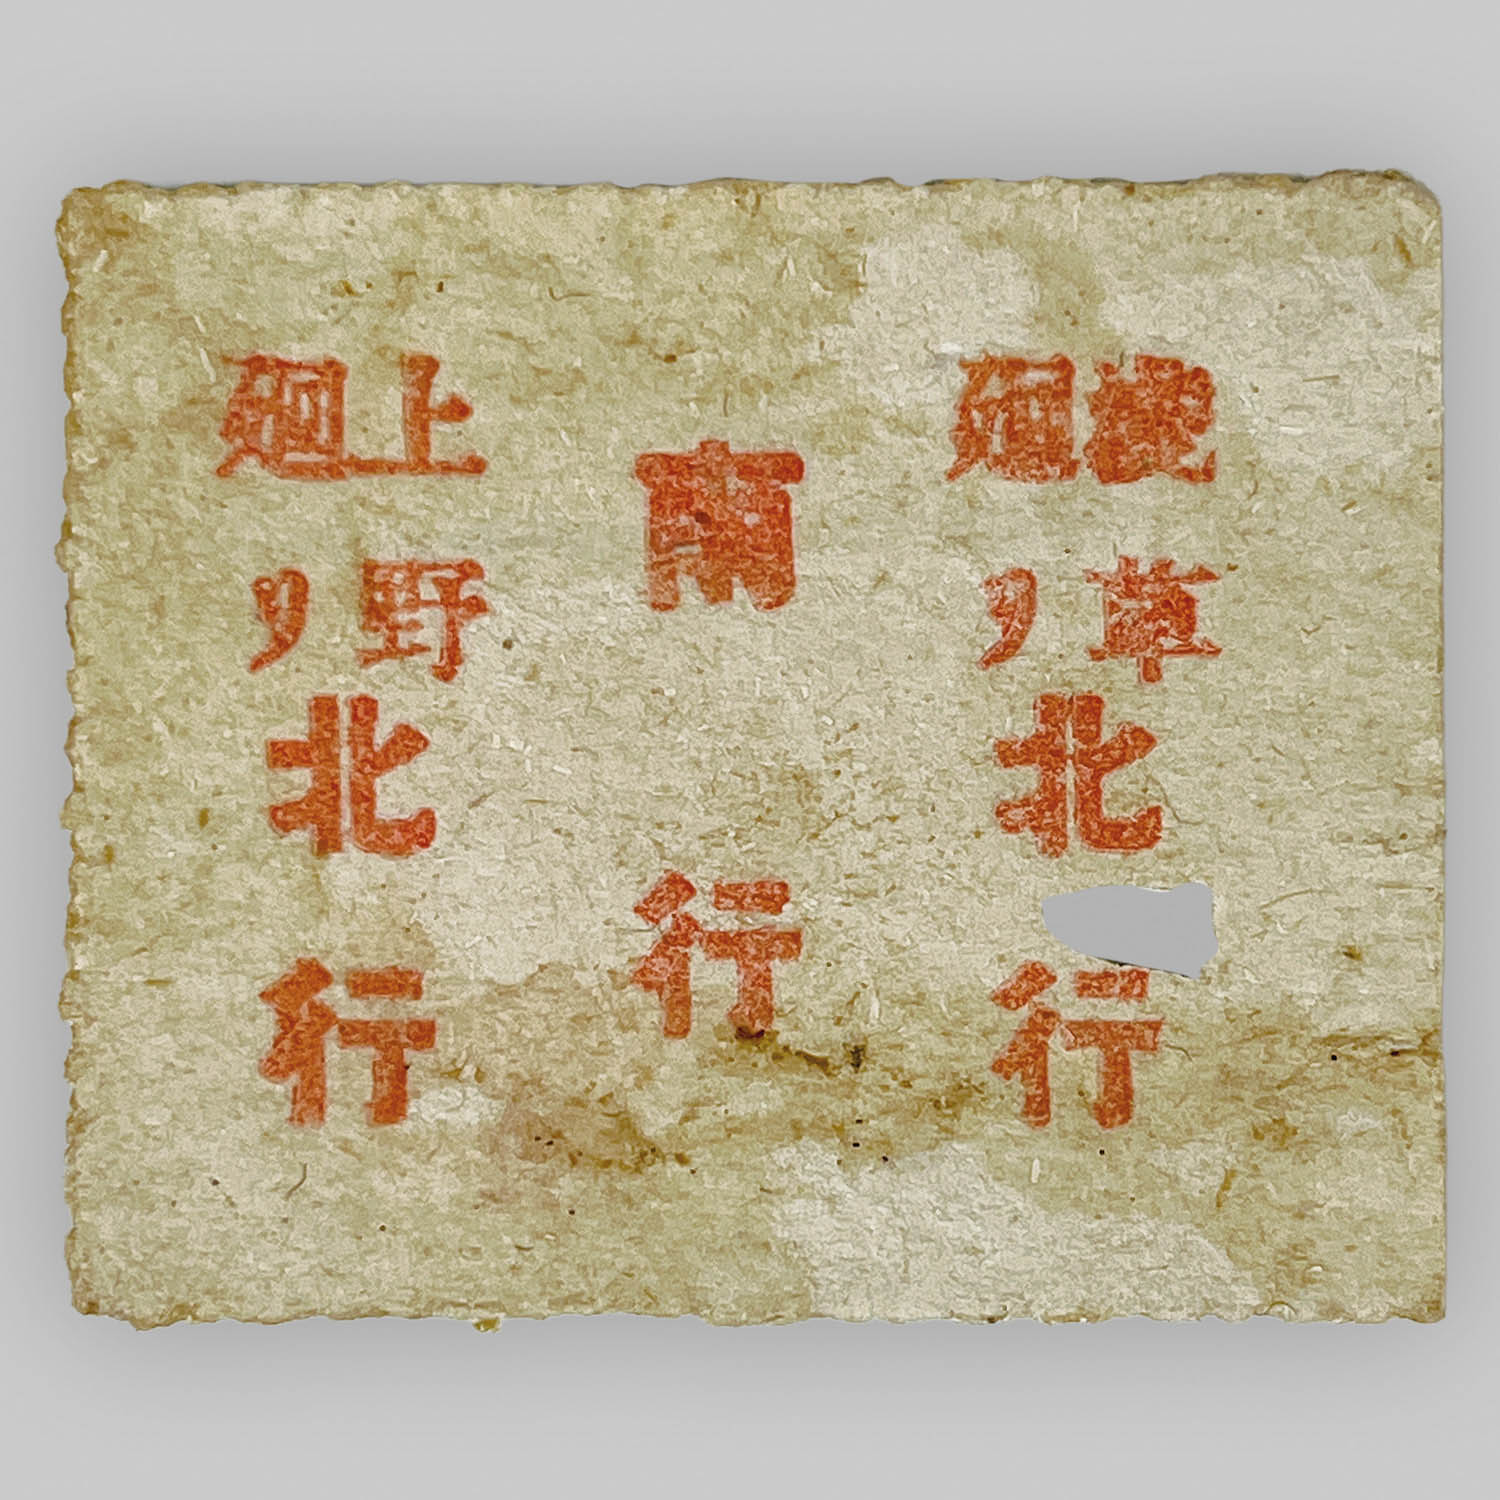 淺草
廻リ
北行
南行
上野
廻リ
北行